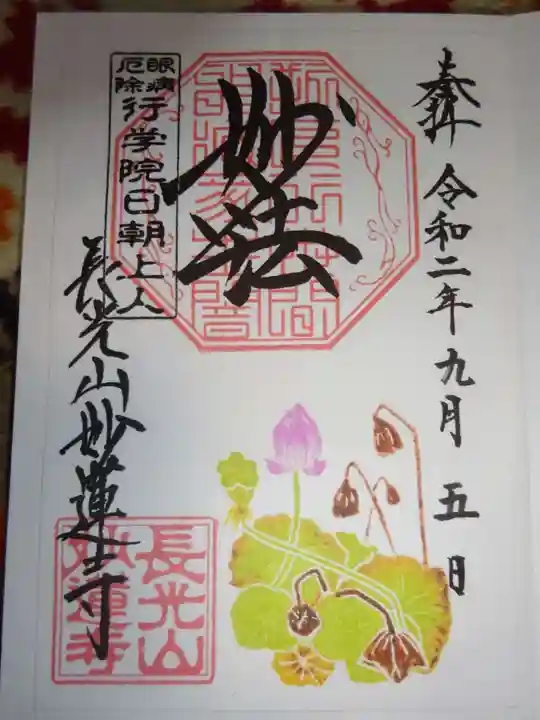 奉拝
令和二年九月五日
妙法
眼病
厄除
行学院日朝上人
長光山妙蓮寺
長光山
妙蓮寺